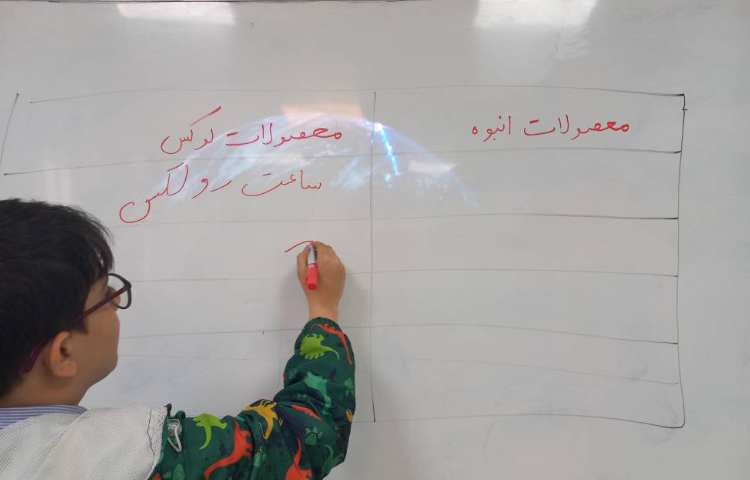 محصولات انبوه
محصولات لوکس
ساعت رولکس